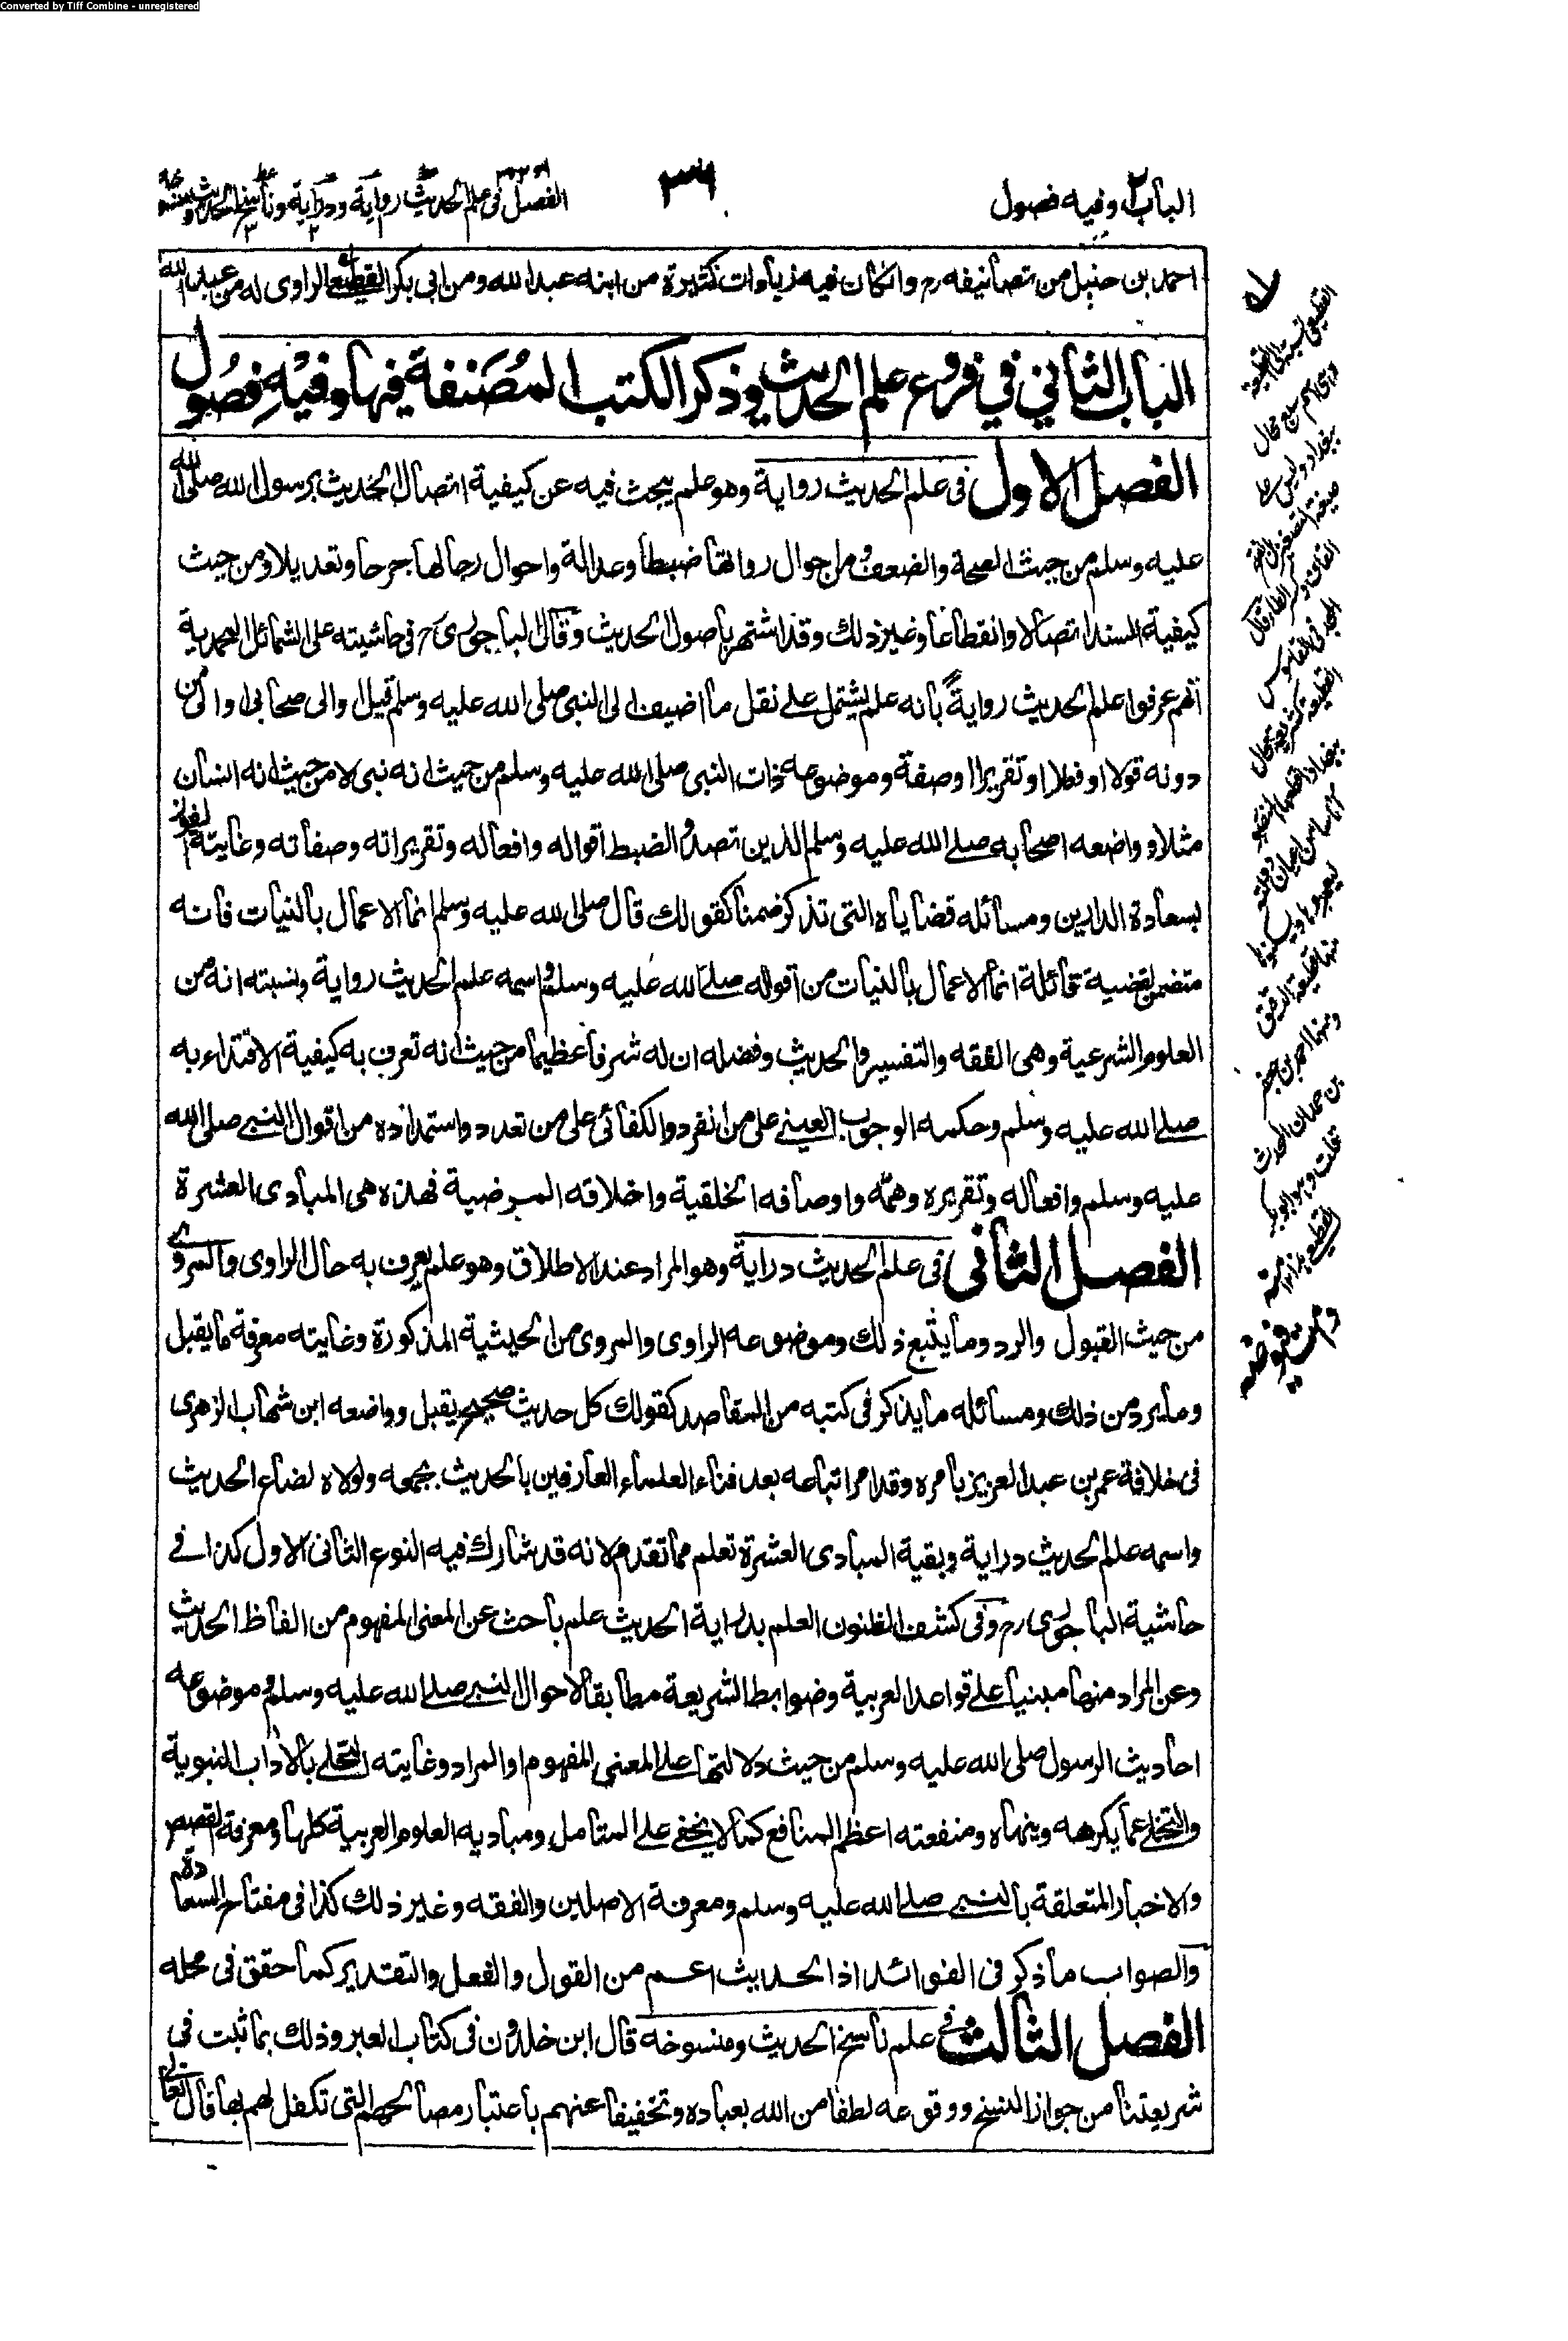 Converted by Tiff Combine - unregistered
الباب٢ وفيه فصول
٣٦
الفصل فى علم الحديث رواية ودراية وناسخ الحديث
احمد بن حنبل من تصانيفه رح وان كان فيه زيادات كثيرة من ابنه عبد الله ومن ابى بكر القطيعى الراوى له من عبد الله
الباب الثاني في فروع علم الحديث وذكر الكتب المصنفة فيها وفيه فصول
الفصل الاول فى علم الحديث رواية وهو علم يبحث فيه عن كيفية اتصال الحديث برسول الله صلى الله
عليه وسلم من حيث الصحة والضعف ومن احوال رواتها ضبطا وعدالة واحوال رجالها جرحا وتعديلا ومن حيث
كيفية السند اتصالا وانقطاعا وغير ذلك وقد اشتهر باصول الحديث وقال الباجورى رح فى حاشيته على الشمائل المحمدية
انهم عرفوا علم الحديث رواية بانه علم يشتمل على نقل ما اضيف الى النبى صلى الله عليه وسلم قيل او الى صحابى او الى من
دونه قولا او فعلا او تقريرا او صفة وموضوعه ذات النبى صلى الله عليه وسلم من حيث انه نبى لا من حيث انه انسان
مثلا و واضعه اصحابه صلى الله عليه وسلم الذين تصدوا لضبط اقواله وافعاله وتقريراته وصفاته وغايته الفوز
بسعادة الدارين ومسائله قضاياه التى تذكر ضمنا كقولك قال صلى الله عليه وسلم انما الاعمال بالنيات فانه
متضمن لقضية قائلة انما الاعمال بالنيات من اقواله صلى الله عليه وسلم واسمه علم الحديث رواية ونسبته انه من
العلوم الشرعية وهى الفقه والتفسير والحديث وفضله ان له شرفا عظيما من حيث انه تعرف به كيفية الاقتداء به
صلى الله عليه وسلم وحكمه الوجوب العينى على من انفرد والكفائى على من تعدد واستمداده من اقوال النبى صلى الله
عليه وسلم وافعاله وتقريره وهمّه واوصافه الخلقية واخلاقه المرضية فهذه هى المبادى العشرة
الفصل الثانى فى علم الحديث دراية وهو المراد عند الاطلاق وهو علم يعرف به حال الراوى والمروى
من حيث القبول والرد وما يتبع ذلك وموضوعه الراوى والمروى من الحيثية المذكورة وغايته معرفة ما يقبل
وما يرد من ذلك ومسائله ما يذكر فى كتبه من المقاصد كقولك كل حديث صحيح يقبل وواضعه ابن شهاب الزهرى
فى خلافة عمر بن عبد العزيز بامره وقد امر اتباعه بعد فناء العلماء العارفين بالحديث بجمعه ولولاه لضاع الحديث
واسمه علم الحديث دراية وبقية المبادى العشرة تعلم مما تقدم لانه قد شارك فيه النوع الثانى الاول كذا فى
حاشية الباجورى رح وفى كشف الظنون العلم بدراية الحديث علم باحث عن المعنى المفهوم من الفاظ الحديث
وعن المراد منها مبنيا على قواعد العربية وضوابط الشريعة مطابقا لاحوال النبى صلى الله عليه وسلم وموضوعه
احاديث الرسول صلى الله عليه وسلم من حيث دلالتها على المعنى المفهوم او المراد وغايته التحلى بالاداب النبوية
والتخلى عما يكرهه وينهاه ومنفعته اعظم المنافع كما لا يخفى على المتامل ومباديه العلوم العربية كلها ومعرفة القصص
والاخبار المتعلقة بالنبى صلى الله عليه وسلم ومعرفة الاصلين والفقه وغير ذلك كذا فى مفتاح السعادة
والصواب ما ذكر فى الفوائد اذ الحديث اعم من القول والفعل والتقدير كما حقق فى محله
الفصل الثالث فى علم ناسخ الحديث ومنسوخه قال ابن خلدون فى كتاب العبر وذلك بما ثبت فى
شريعتنا من جواز النسخ ووقوعه لطفا من الله بعباده وتخفيفا عنهم باعتبار مصالحهم التى تكفل لهم بها قال تعالى
القطيعى نسبة الى القطيعة
بغداد وليس على
صيغة التصغير
المجد فى القاموس
ومنها احمد بن جعفر
بن حمدان المحدث
قلت وهو ابوبكر
القطيعى